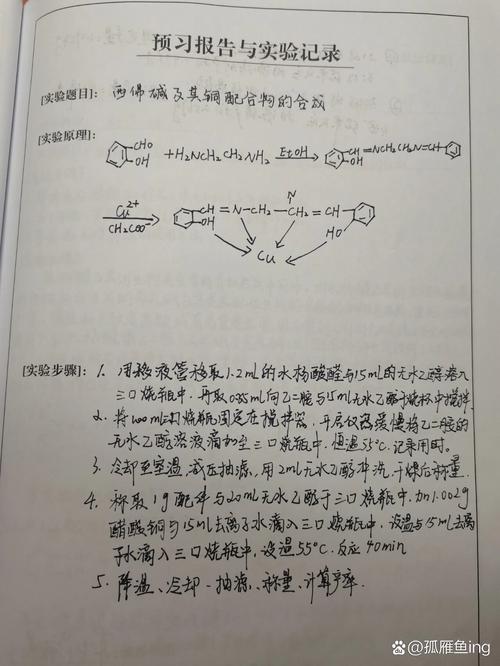 预习报告与实验记录
[实验题目]: 西佛碱及其铜配合物的合成
[实验原理]:
CHO
OH
+H₂NCH₂CH₂NH₂
EtOH
CH=NCH₂CH₂N=CH
OH
Cu²⁺
CH₃COO⁻
CH=N-CH₂-CH₂=CH
N
OH
HO
Cu
[实验步骤]: 1. 用移液管移取1.2mL的水杨醛与15mL的无水乙醇溶入
三口烧瓶中,再取0.35mL向乙二胺与15mL无水乙醇于烧杯中搅拌
2. 将100ml三口烧瓶固定在搅拌器,开启仪器缓慢将乙二胺的
无水乙醇溶液滴加至三口烧瓶中,恒温55°C.记录用时。
3. 冷却至室温,减压抽滤,用2mL无水乙醇冲洗,干燥后称量.
4. 称取1g配体与20mL无水乙醇于三口烧瓶中,加1.002g
醋酸铜与15mL去离子水滴入三口烧瓶中,设温与15mL去离
子水滴入三口烧瓶中,设温55°C.反应40min
5. 降温、冷却、抽滤、称量、计算产率.
@孤雁鱼ing